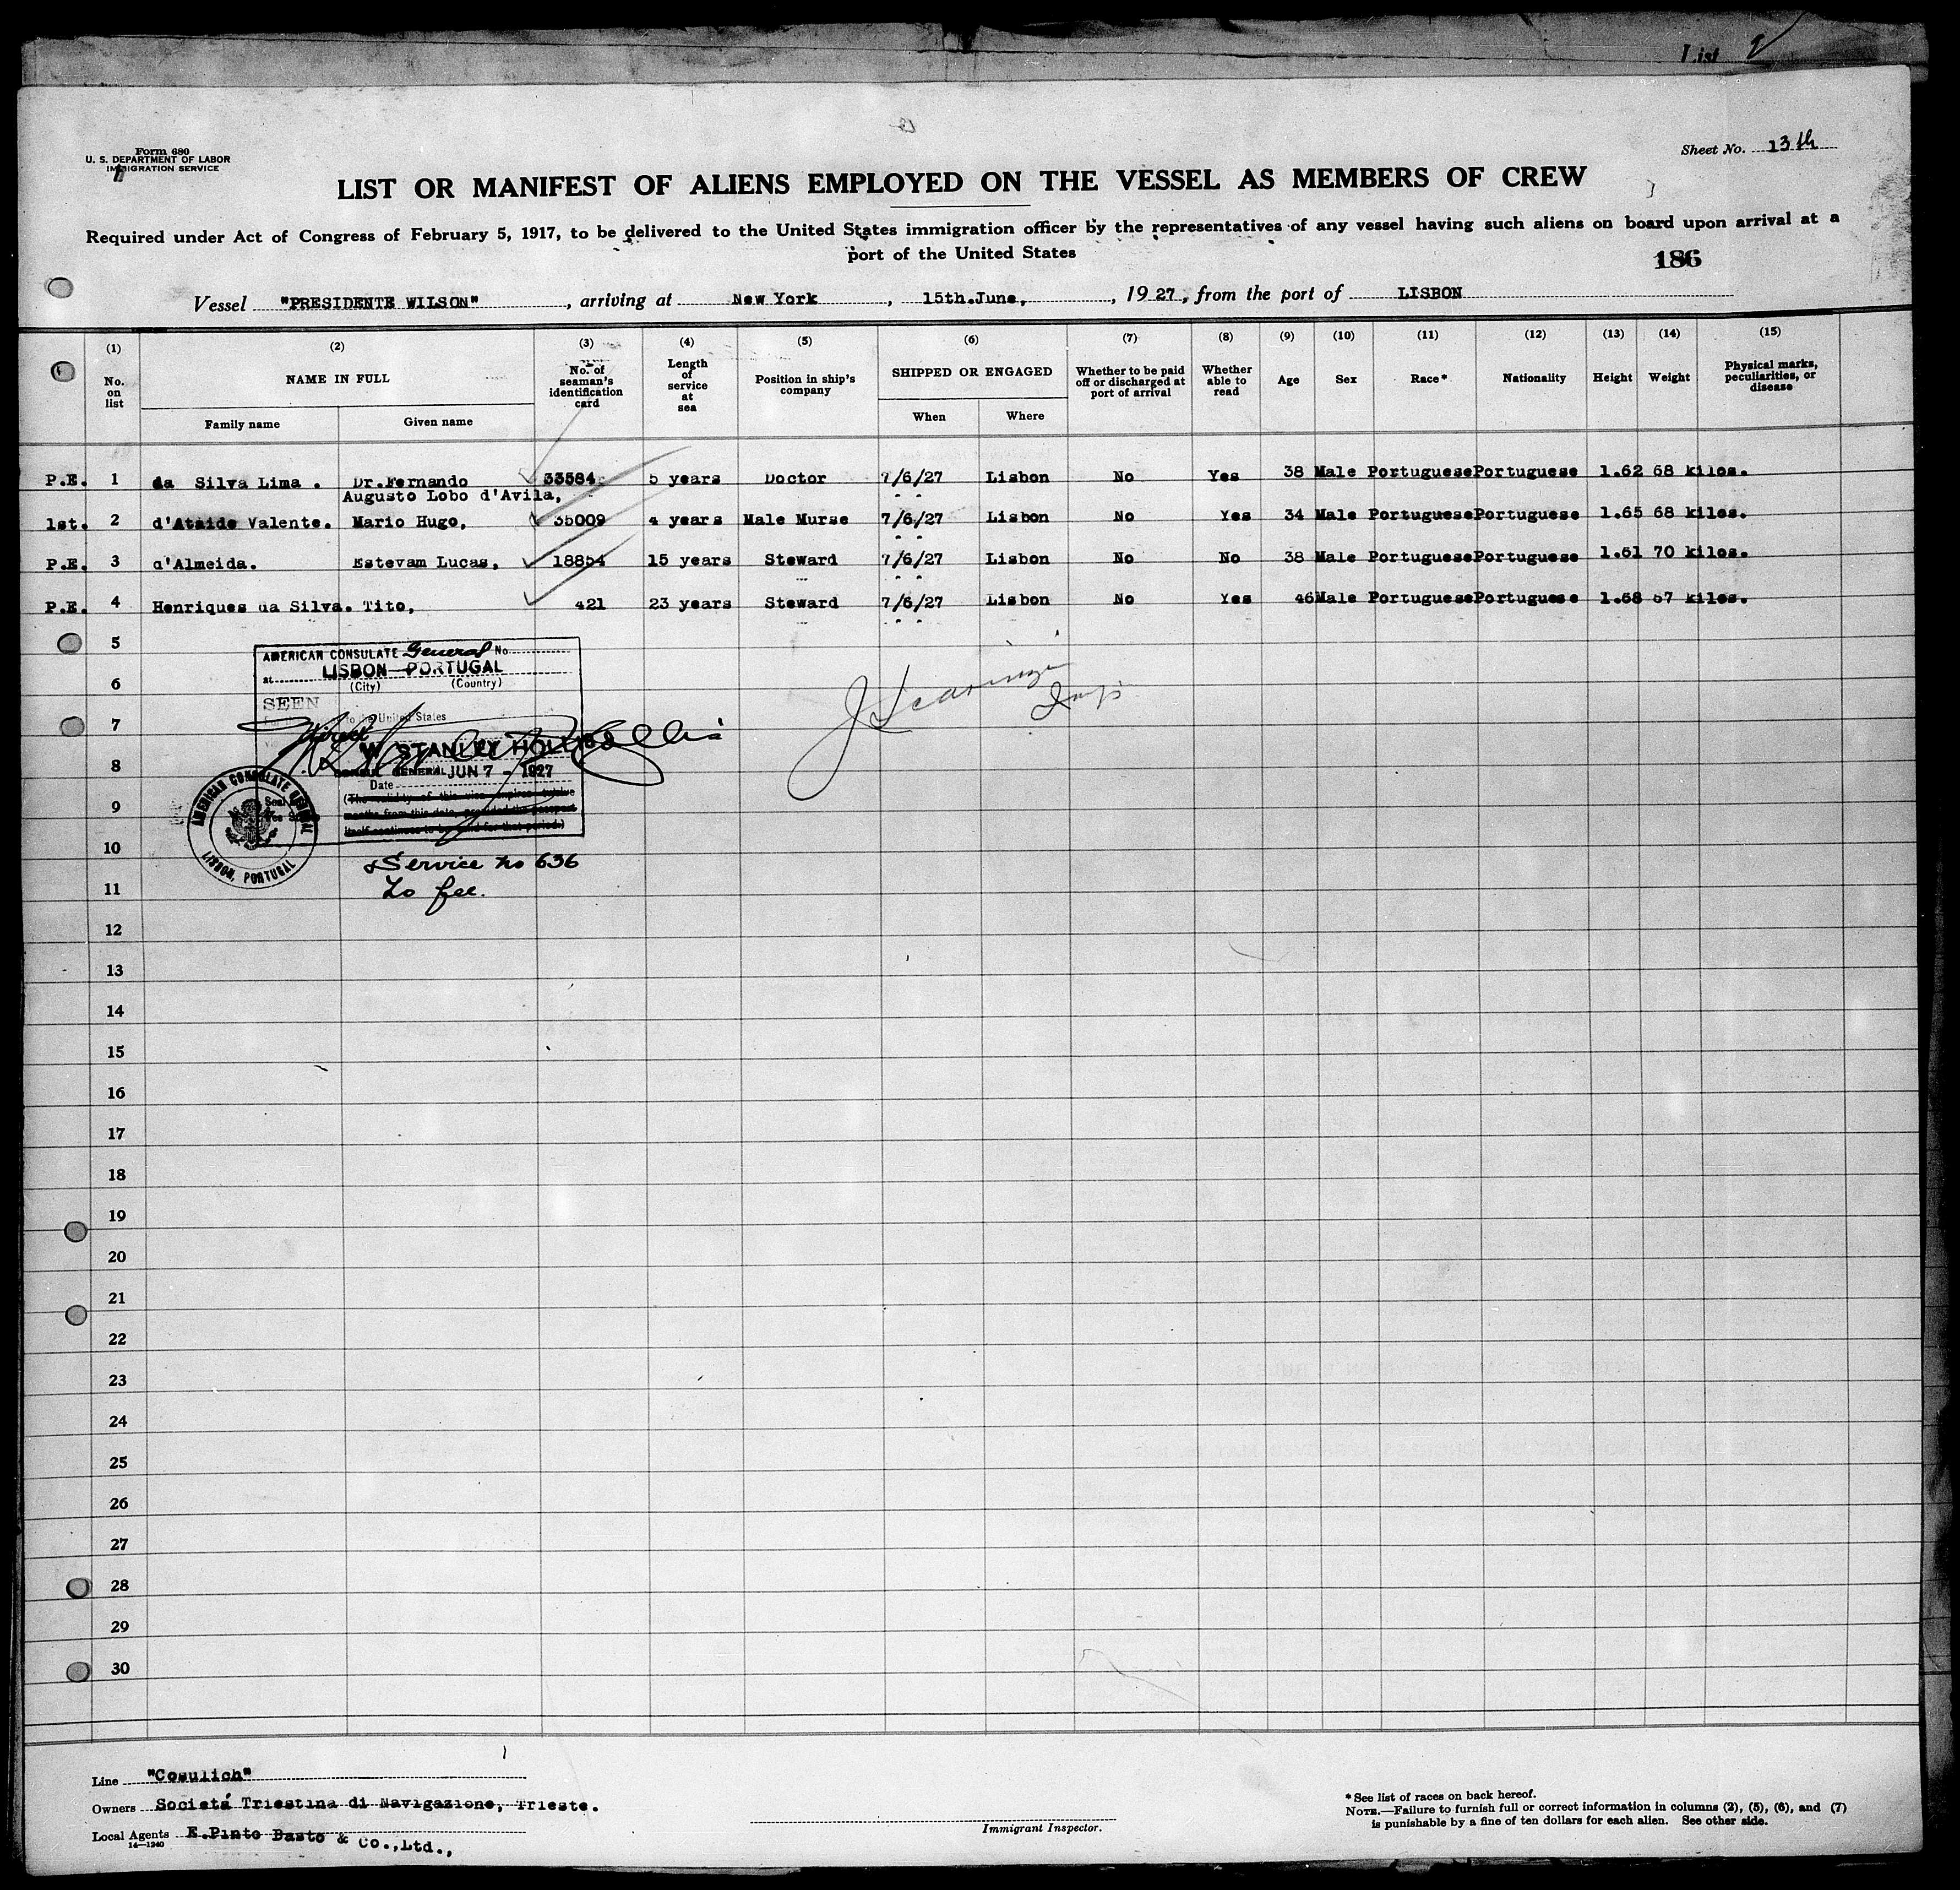 List 9
Form 680
U. S. DEPARTMENT OF LABOR
IMMIGRATION SERVICE
Sheet No. 13th
LIST OR MANIFEST OF ALIENS EMPLOYED ON THE VESSEL AS MEMBERS OF CREW
Required under Act of Congress of February 5, 1917, to be delivered to the United States immigration officer by the representatives of any vessel having such aliens on board upon arrival at a
port of the United States
186
Vessel "PRESIDENTE WILSON", arriving at New York, 15th.June, , 1927, from the port of LISBON
(1) (2) (3) (4) (5) (6) (7) (8) (9) (10) (11) (12) (13) (14) (15)
No. on list
NAME IN FULL
Family name Given name
No. of seaman's identification card
Length of service at sea
Position in ship's company
SHIPPED OR ENGAGED
When Where
Whether to be paid off or discharged at port of arrival
Whether able to read
Age Sex Race* Nationality Height Weight
Physical marks, peculiarities, or disease
P.E. 1 da Silva Lima . Dr.Fernando 33584 5 years Doctor 7/6/27 Lisbon No Yes 38 Male Portuguese Portuguese 1.62 68 kilos.
Augusto Lobo d'Avila,
1st. 2 d'Ataide Valente. Mario Hugo, 35009 4 years Male Murse 7/6/27 Lisbon No Yes 34 Male Portuguese Portuguese 1.65 68 kilos.
P.E. 3 d'Almeida. Estevam Lucas, 18854 15 years Steward 7/6/27 Lisbon No No 38 Male Portuguese Portuguese 1.61 70 kilos.
P.E. 4 Henriques da Silva. Tito, 421 23 years Steward 7/6/27 Lisbon No Yes 46 Male Portuguese Portuguese 1.68 67 kilos.
5
6
7
8
9
10
11
12
13
14
15
16
17
18
19
20
21
22
23
24
25
26
27
28
29
30
AMERICAN CONSULATE General No.
at LISBON—PORTUGAL
(City) (Country)
SEEN
to the United States
W. STANLEY HOLLIS
CONSUL GENERAL JUN 7 - 1927
Date
(The validity of this visa expires twelve
months from this date, provided the passport
itself continues to be valid for that period.)
AMERICAN CONSULATE GENERAL
LISBON, PORTUGAL
Service no 636
No fee.
Insp
Line "Cosulich"
Owners Societá Triestina di Navigazione, Trieste.
Local Agents E.Pinto Basto & Co.,Ltd.,
14—1240
Immigrant Inspector.
* See list of races on back hereof.
NOTE.—Failure to furnish full or correct information in columns (2), (5), (6), and (7)
is punishable by a fine of ten dollars for each alien. See other side.